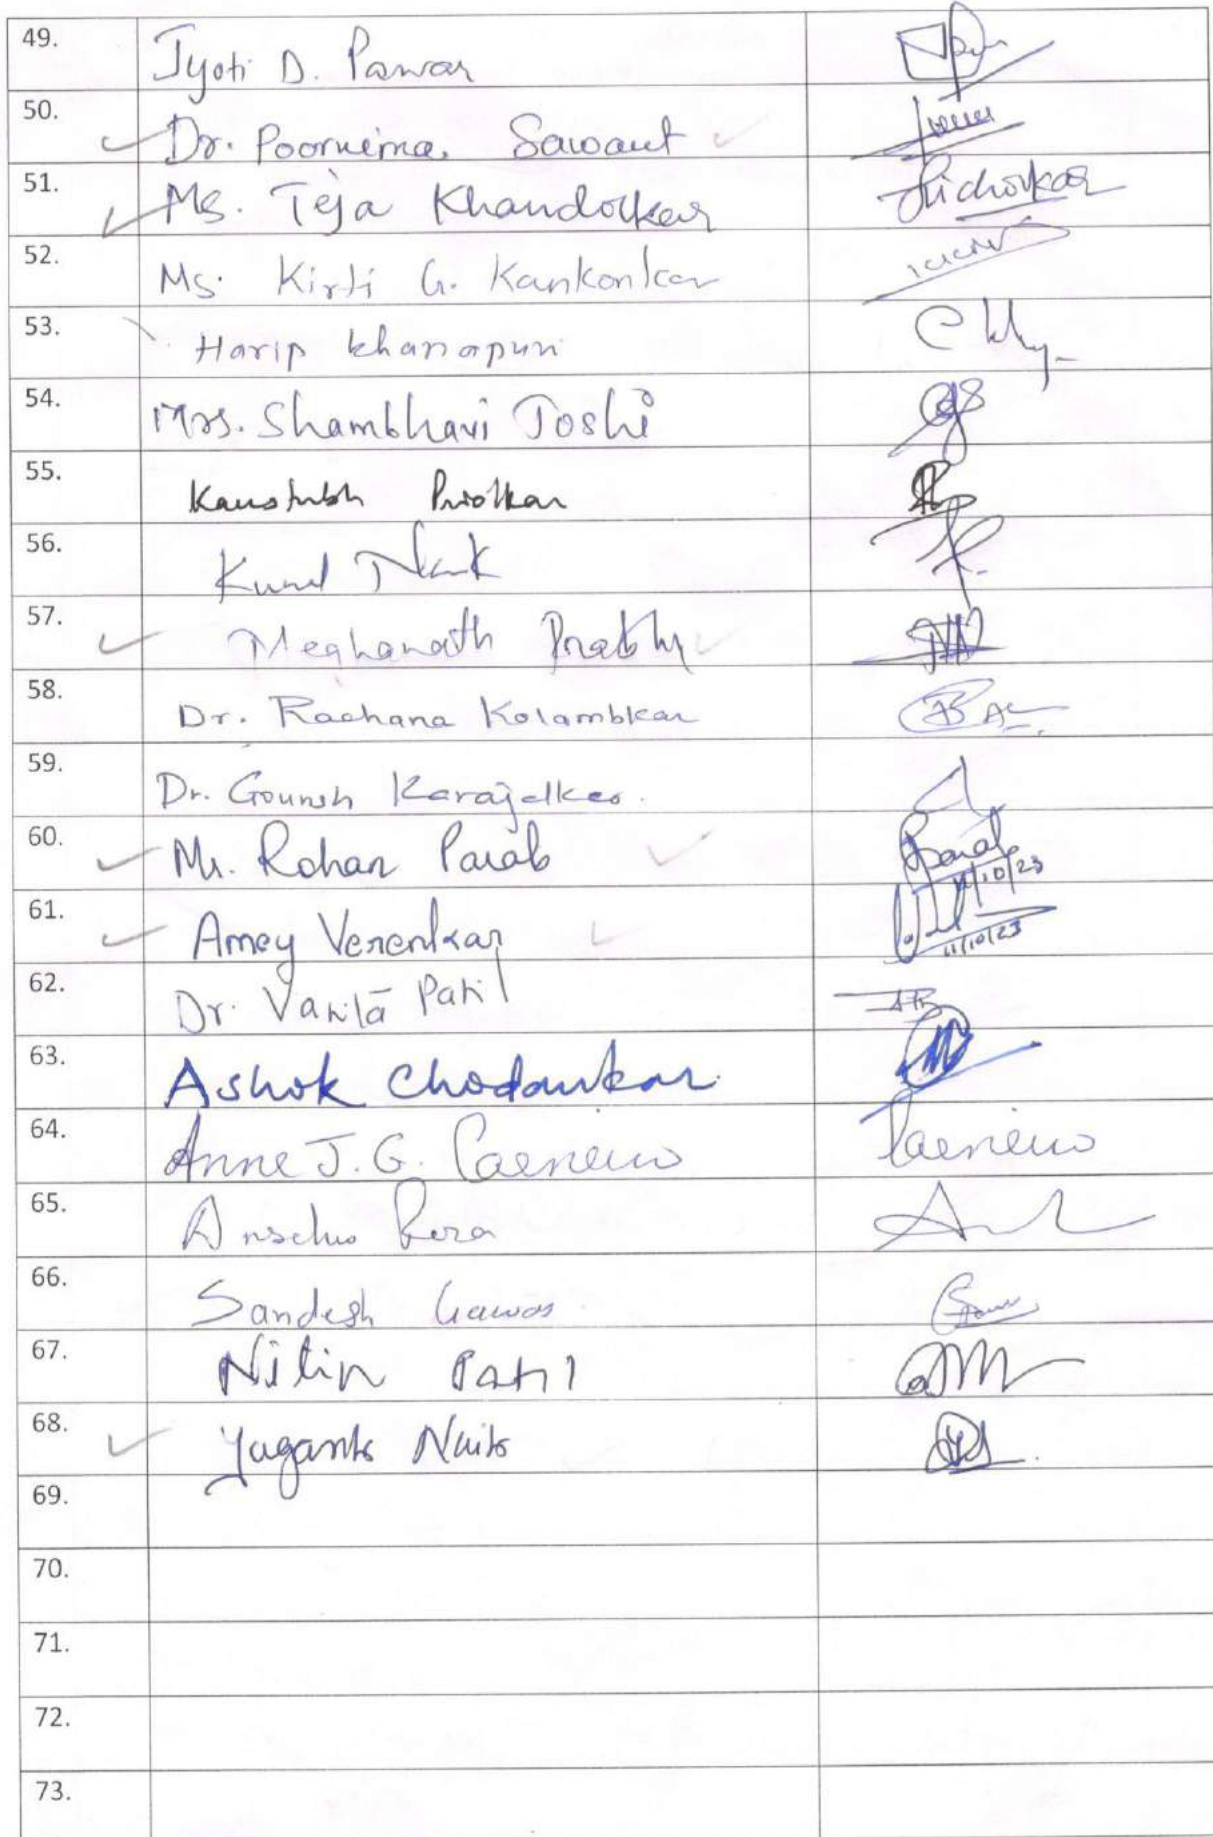 49. Jyoti D. Pawar
50. Dr. Poornima. Sawant
51. Ms. Teja Khandolkar
52. Ms. Kirti G. Kankonkar
53. Harip Khanapuri
54. Mrs. Shambhavi Joshi
55. Kaustubh Priolkar
56. Kunal Naik
57. Meghanath Prabhu
58. Dr. Rachana Kolambkar
59. Dr. Gounish
60. Mr. Rohan Parab Parab
11/10/23
61. Amey Verenkar
11/10/23
62. Dr. Vanitā Patil
63. Ashok Chodankar
64. Anne J. G.
65.
66. Sandesh Gawas
67. Nitin Patil
68. Naik
69.
70.
71.
72.
73.